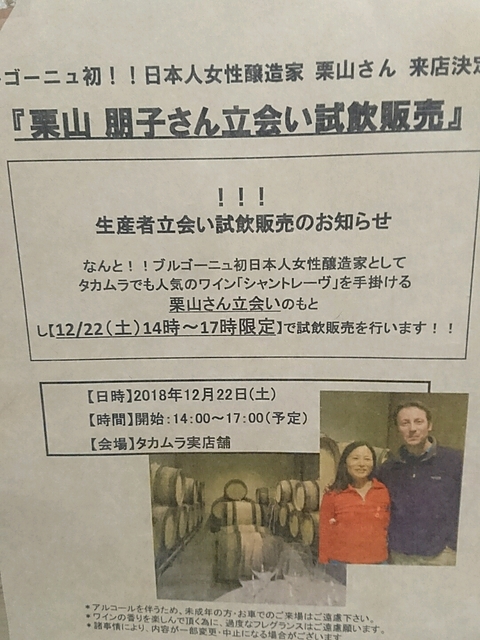 ルゴーニュ初！！日本人女性醸造家 栗山さん 来店決定
『栗山 朋子さん立会い試飲販売』
！！！
生産者立会い試飲販売のお知らせ
なんと！！ブルゴーニュ初日本人女性醸造家として
タカムラでも人気のワイン「シャントレーヴ」を手掛ける
栗山さん立会いのもと
し【12/22（土）14時～17時限定】で試飲販売を行います！！
【日時】2018年12月22日(土)
【時間】開始：14:00～17:00(予定)
【会場】タカムラ実店舗
*アルコールを伴うため、未成年の方・お車でのご来場はご遠慮下さい。
*ワインの香りを楽しんで頂く為に、過度なフレグランスはご遠慮願います。
*諸事情により、内容が一部変更・中止になる場合がございます